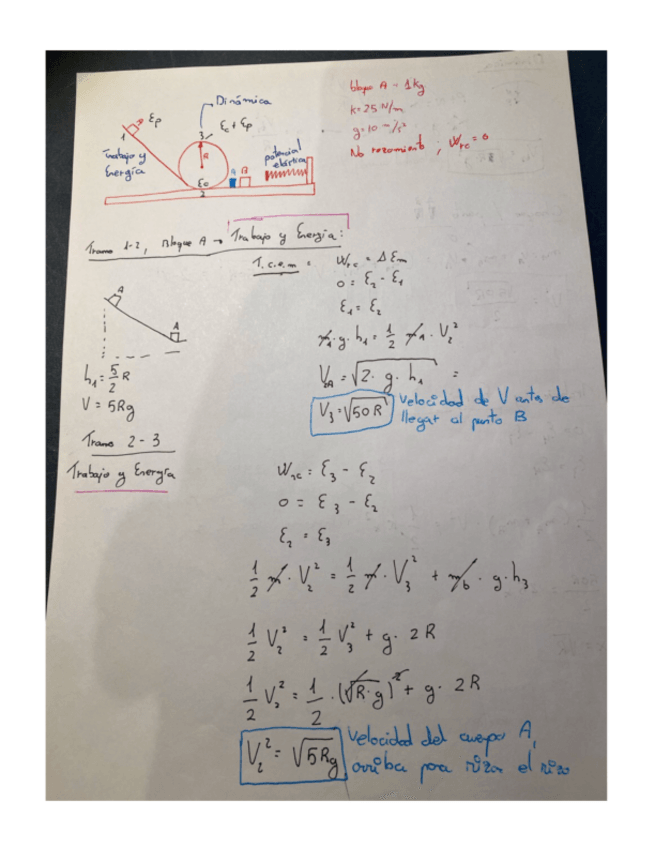 Dinámica
1 Ep
3 Ec + Ep
Trabajo y
Energía
R
Ec
2
A B
potencial
elástica
bloque A → 1kg
k = 25 N/m
g = 10 m/s²
No rozamiento ; Wnc = 0
Tramo 1-2, Bloque A → Trabajo y Energía:
T.c.e.m = Wnc = ΔEm
0 = E2 - E1
E1 = E2
m1 · g · h1 = 1/2 m1 · V2²
V2A = √2 · g · h1 =
V3 = √50 R
Velocidad de V antes de
llegar al punto B
A
A
h1 = 5/2 R
V = 5Rg
Tramo 2 - 3
Trabajo y Energía
Wnc = E3 - E2
0 = E3 - E2
E2 = E3
1/2 m · V2² = 1/2 m · V3² + m · g · h3
1/2 V2² = 1/2 V3² + g · 2R
1/2 V2² = 1/2 · (√R·g)² + g · 2R
V2² = √5Rg
Velocidad del cuerpo A,
arriba para rizar el rizo